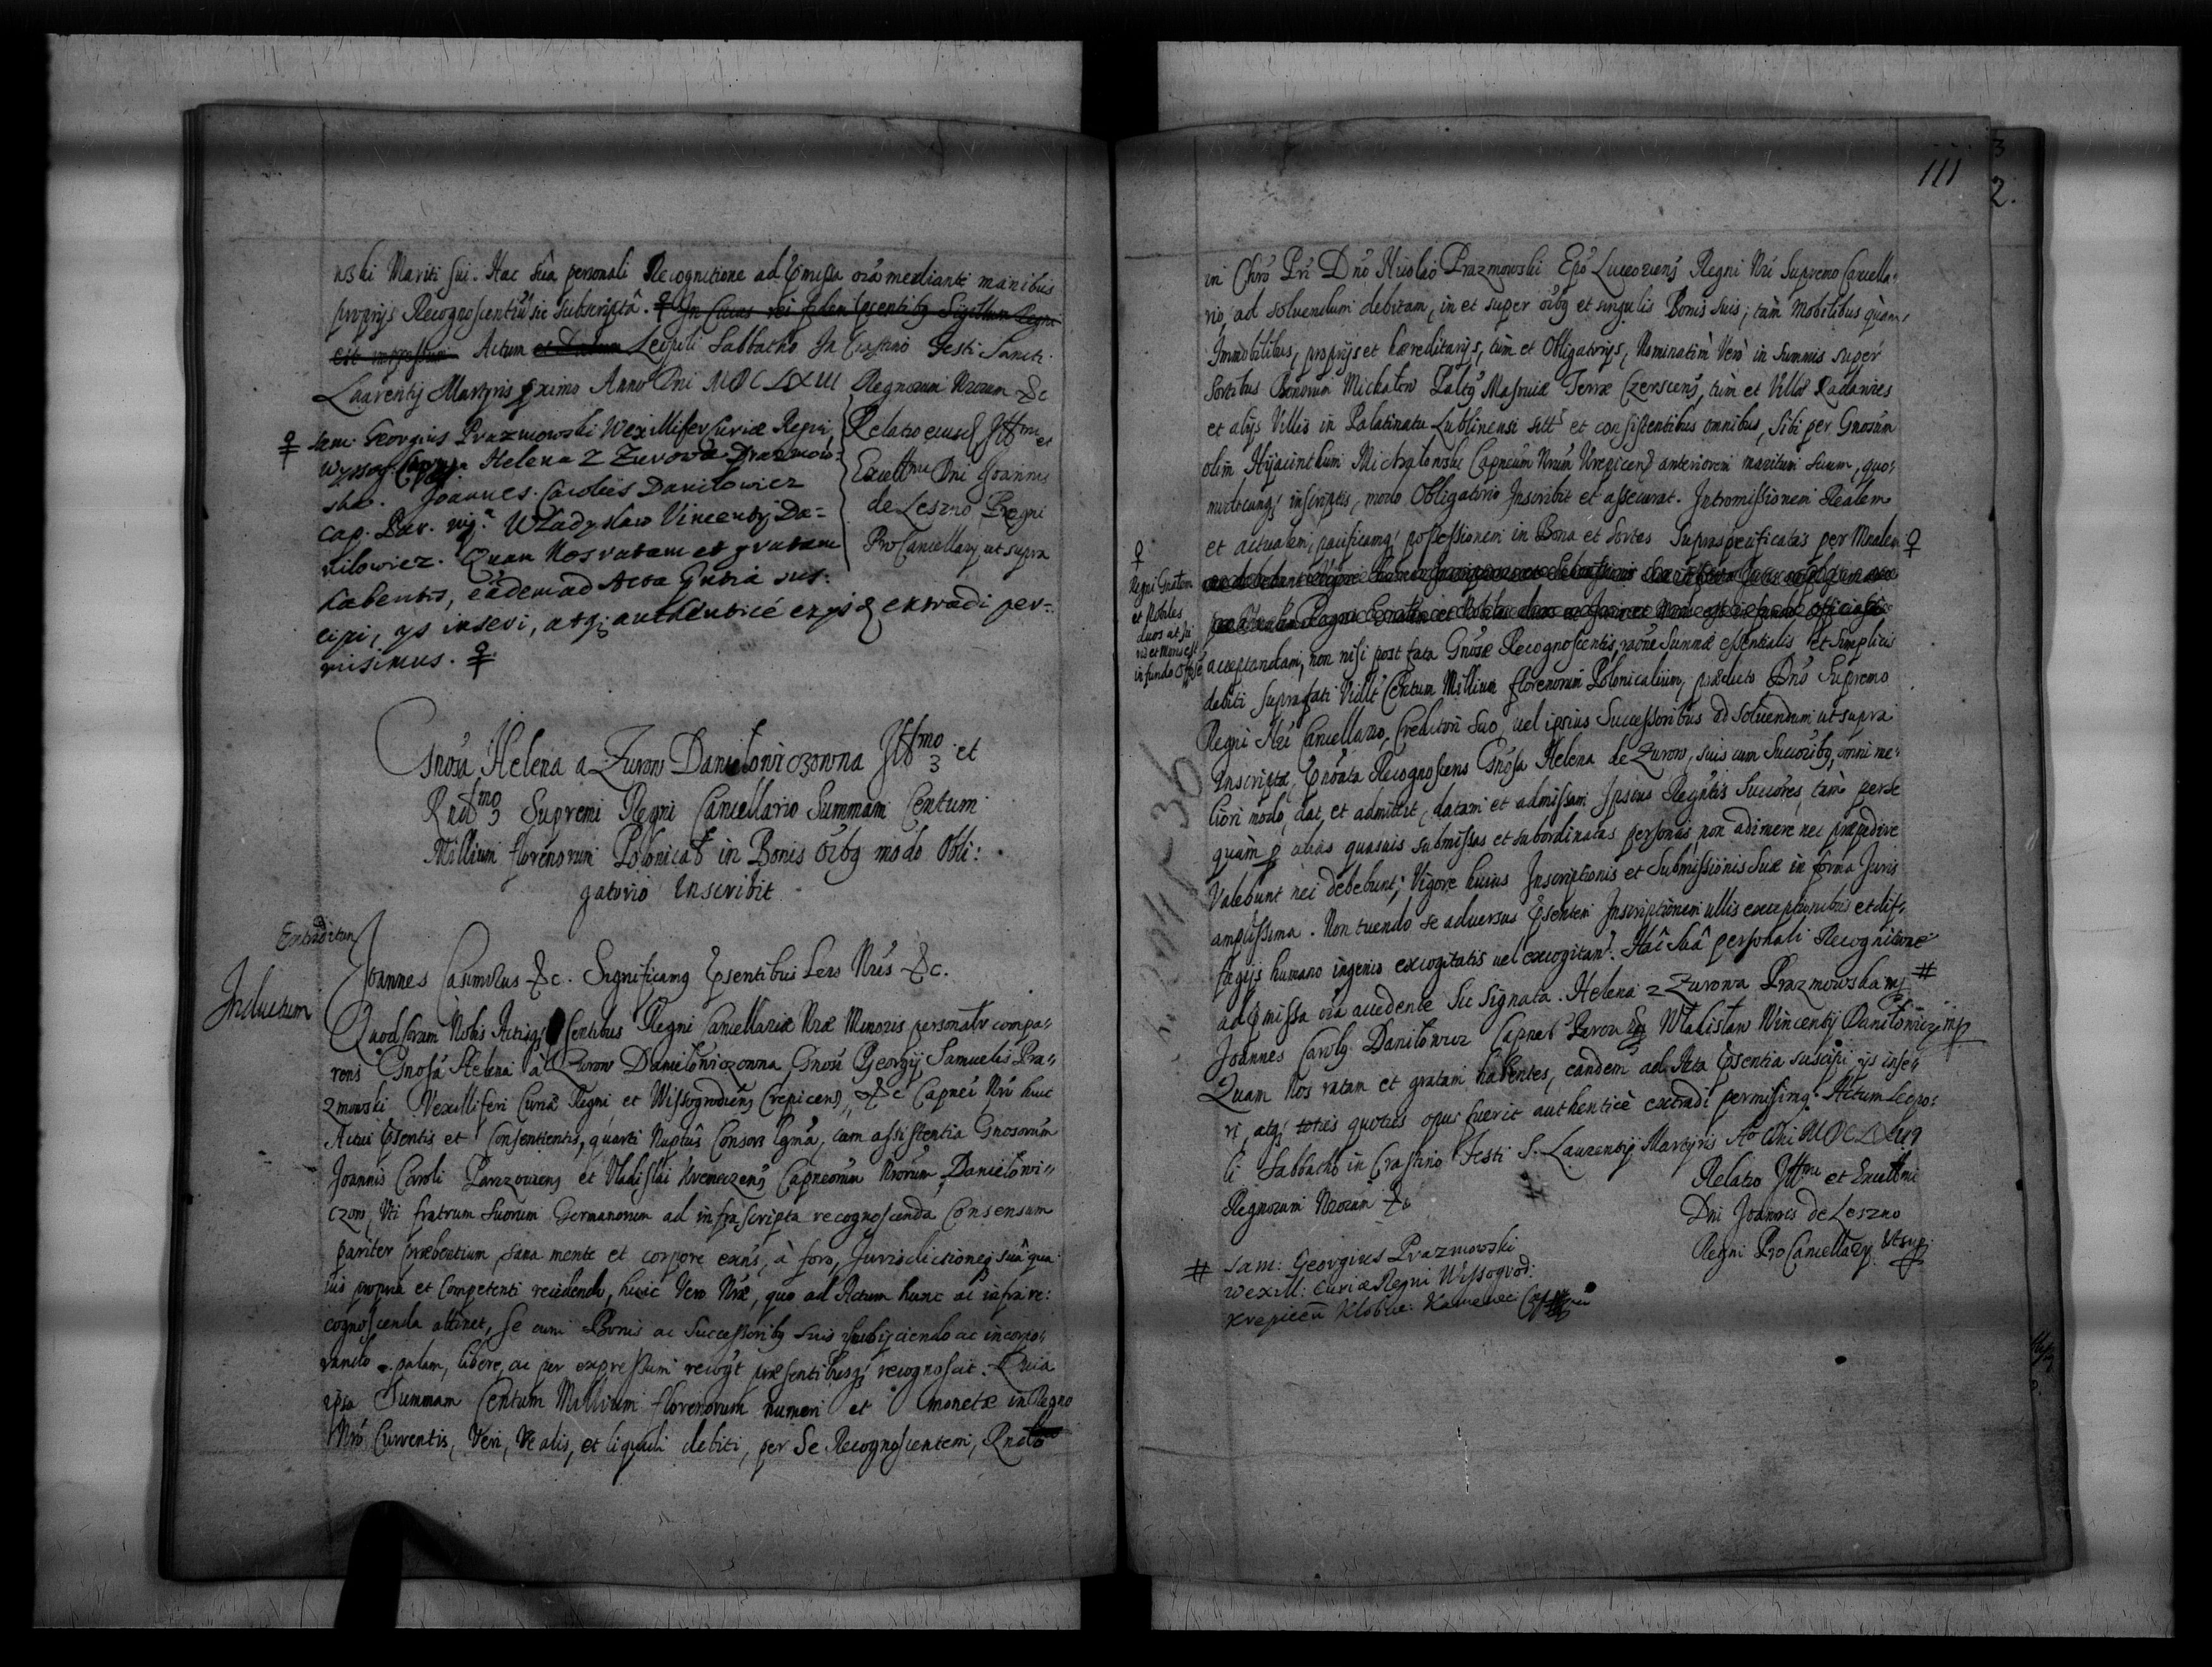 nski Mariti sui. Hac sua personali Recognitione ad pmissa oia mediante manibus
proprijs Recognoscentiu sic subscriptâ. ♀ In Cuius rei fidem psentibq Sigillum Regni
est impressum Actum et Datum Leopoli Sabbatho In Crastino Festi Sancti
Laurentij Martyris pximo Anno Dni MDCLXIII Regnorum Nrorum &c
♀ Sam: Georgius Prazmowski Wexillifer Curiæ Regni,
Wyssog: Helena z Zurowa Prazmow-
ska. Joannes Carolus Danilowicz
Cap. Par. Wladyslaw Vincenty Da-
nilowicz. Quam Nos ratam et gratam
habentes, eadem ad Acta pntia sus-
cipi, ijs inseri, atq; authenticé extradi per-
misimus. ♀
Relatio eiusd Illmi et
Excellmi Dni Joannis
de Leszno Regni
ProCancellarij ut supra
Gnosa Helena a Zurow Danielowiczowna Illmo et
Rndmo Supremi Regni Cancellario Summam Centum
Millium florenorum Polonical in Bonis oibq modo Obli:
gatorio Inscribit
Extraditum
Inductum
Joannes Casimirus &c. Significamq psentibus Lris Nris &c.
Quod coram Nobis Actisq; psentibus Regni Cancellariæ Nræ Minoris personalr compa-
rens Gnosa Helena à Zurow Danielowiczowna Gnosi Georgij Samuelis Pra-
zmowski Vexilliferi Curiæ Regni et Wissogrodiens Crepicens, &c Capnei Nri huic
Actui psentis et Consentientis, quarti Nuptûs Consors lgma, cum assistentia Gnosorum
Joannis Caroli Parczouiens et Vladislai Kremeczens Capneorum Nrorum, Danielowi-
czow, Vti fratrum Suorum Germanorum ad infrascripta recognoscenda Consensum
pariter præbentium sana mente et corpore exns, à foro, Jurisdictioneq suâ qua
uis propria et Competenti recedendo, huic Vero Nræ, quo ad Actum hunc ac infra re:
cognoscenda attinet, se cum Bonis ac Successoribq suis subijciendo ac incorpo-
rando palam, libere, ac per expressum recogt præsentibusq; recognoscit. Quia
ipsa Summam Centum Millium florenorum numeri et monetæ in Regno
Nro Currentis, Veri, Realis, et liquidi debiti, per Se Recognoscentem, Rndo
111
3
2.
in Chro Pri Dno Nicolao Prazmowski Epo Luceoriens Regni Nri Supremo Cancella-
rio ad soluendum debitam, in et super oibq et singulis Bonis suis, tàm Mobilibus quàm
Immobilibus, proprijs et hæreditarijs, tùm et Obligatorijs, Nominatim Verò in Summis super
Sortibus Bonorum Michałow Palty Masouiæ Terræ Czerscens, tùm et Villis Radawiec
et alijs Villis in Palatinatu Lublinensi sitts et consistentibus omnibus, sibi per Gnosum
olim Hijacinthum Michałowski Capneum Nrum Krepicens anteriorem maritum suum, quo-
modocunq; inscriptis, modo Obligatorio Inscribit et assecurat. Intromissionem Realem
et actualem, pacificamq; possessionem in Bona et Sortes Supraspecificatas per Mnalem ♀
♀
Regni Gnalem
et Nobiles
duos at Ju
ris et Moris est
in fundo
acceptandam, non nisi post fata Gnosæ Recognoscentis, raõne Summæ essentialis et Simplicis
debiti suprafati Vidlt Centum Millium florenorum Polonicalium, prædicto Dno Supremo
Regni Nri Cancellario, Creditori Suo, uel ipsius Successoribus ad soluendum ut supra
Inscriptæ, pnoiata Recognoscens Gnosa Helena de Zurow, suis cum Succoribq, omni me-
liori modo, dat, et admittit, datam et admissam Ipsius Regntis Succores, tàm per se
quàm p alias quasuis submissas et subordinatas personas non adimere nec præpedire
Valebunt nec debebunt; Vigore huius Inscriptionis et Submissionis Suæ in forma Juris
amplissima. Non tuendo se aduersus psentem Inscriptionem ullis exceptionibus et dif-
fugijs humano ingenio excogitatis uel excogitand. Hac Suâ personali Recognitione
ad pmissa oia accedente Sic Signata. Helena z Zurowa Prazmowska mp #
Joannes Carolq Danilowicz Capnes Parcou mp Wladislaw Wincenty Danilowicz mp
Quam Nos ratam et gratam habentes, eandem ad Acta psentia suscipi ijs inse-
ri, atq; toties quoties opus fuerit authenticè extradi permisimq. Actum Leopo-
li Sabbatho in Crastino Festi S. Laurentij Martyris Ao Dni MDCLXIII
Regnorum Nrorum &c
Relatio Illmi et Excellmi
Dni Joannis de Leszno
Regni ProCancellarij Ut sup:
# Sam: Georgius Prazmowski
Wexill: Curiæ Regni Wissogrod:
Krepicen Klobuc: Kamenec